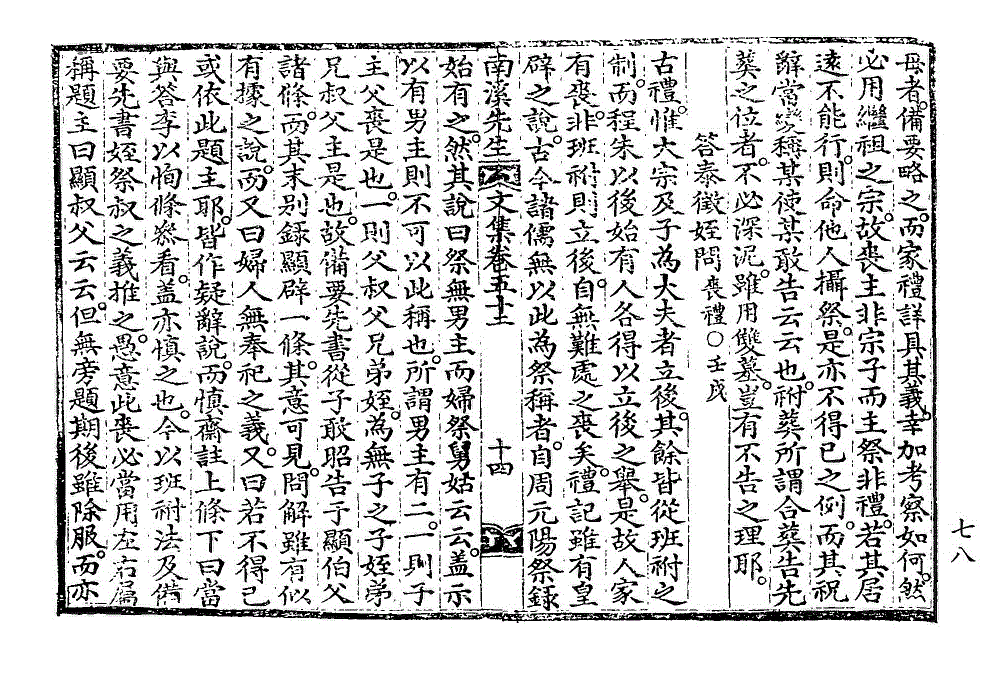 母者。備要略之。而家禮詳具其義。幸加考察如何。然
必用繼祖之宗。故喪主非宗子而主祭非禮。若其居
遠不能行。則命他人攝祭。是亦不得已之例。而其祝
辭當變稱某使某敢告云云也。祔葬所謂合葬告先
葬之位者。不必深泥。雖用雙墓。豈有不告之理耶。
答泰徵姪問 喪禮○壬戌
古禮。惟大宗及子爲大夫者立後。其餘皆從班祔之
制。而程朱以後始有人各得以立後之擧。是故人家
有喪。非班祔則立後。自無難處之喪矣。禮記雖有皇
辟之說。古今諸儒無以此爲祭稱者。自周元陽祭錄
南溪先生文集卷五十三
十四
始有之。然其說曰祭無男主而婦祭舅姑云云。盖示
以有男主則不可以此稱也。所謂男主有二。一則子
主父喪是也。一則父叔父兄弟姪。爲無子之子姪弟
兄叔父主是也。故備要先書從子敢昭告于顯伯父
諸條。而其末別錄顯辟一條。其意可見。問解雖有似
有據之說。而又曰婦人無奉祀之義。又曰若不得已
或依此題主耶。皆作疑辭說。而愼齋註上條下曰當
與答李以恂條叅看。盖亦愼之也。今以班祔法及備
要先書姪祭叔之義推之。愚意此喪必當用左右偏
稱題主曰顯叔父云云。但無旁題期後雖除服。而亦
七八